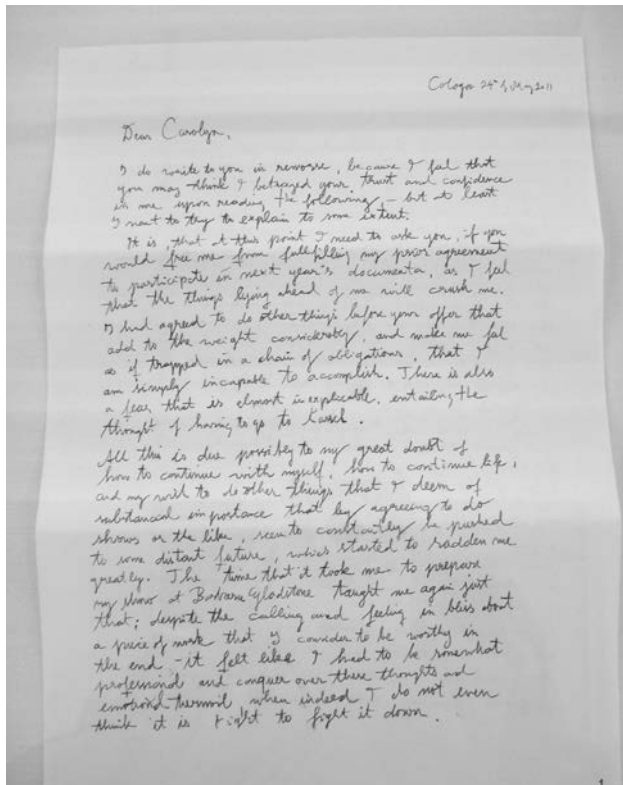 Cologn 24th of May 2011
Dear Carolyn,
I do write to you in remorse, because I feel that
you may think I betrayed your trust and confidence
in me upon reading the following – but at least
I want to try to explain to some extent.
It is, that at this point I need to ask you, if you
would free me from fullfilling my prior agreement
to participate in next year's documenta, as I feel
that the things lying ahead of me will crush me.
I had agreed to do other things before your offer that
add to the weight considerably, and make me feel
as if trapped in a chain of obligations, that I
am simply incapable to accomplish. There is also
a fear that is almost inexplicable, entailing the
thought of having to go to Kassel.
All this is due possibly to my great doubt of
how to continue with myself, how to continue life,
and my wish to do other things that I deem of
substancial importance that by agreeing to do
shows or the like, seem to constantly be pushed
to some distant future, which started to sadden me
greatly. The time that it took me to prepare
my show at Barbara Gladstone taught me again just
that; despite the calling and feeling in bliss about
a piece of work that I consider to be worthy in
the end – it felt like I had to be somewhat
professional and conquer over these thoughts and
emotional when indeed I do not even
think it is right to fight it down.
1